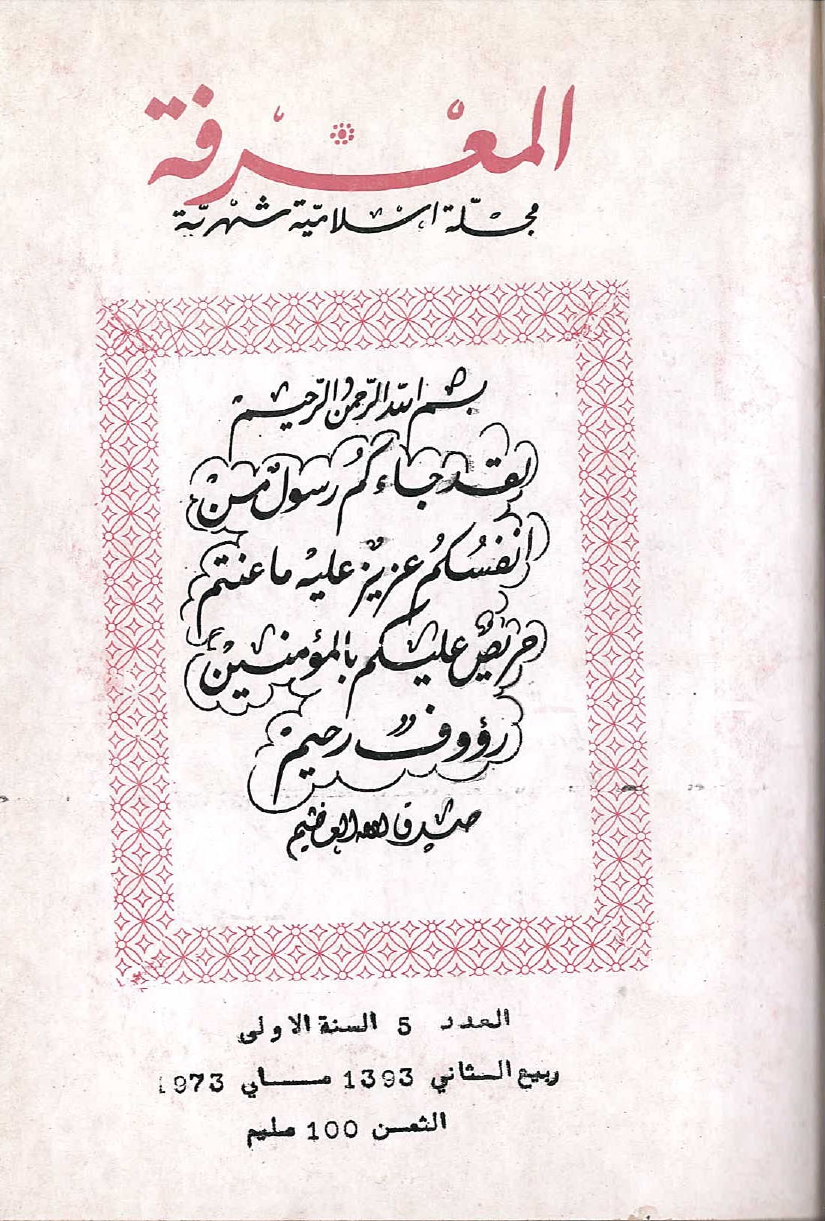 المعرفة
مجلة اسلامية شهرية
بسم الله الرحمن الرحيم
لقد جاءكم رسول من
انفسكم عزيز عليه ما عنتم
حريص عليكم بالمؤمنين
رؤوف رحيم
صدق الله العظيم
العدد 5 السنة الاولى
ربيع الثاني 1393 مـاي 1973
الثمن 100 مليم